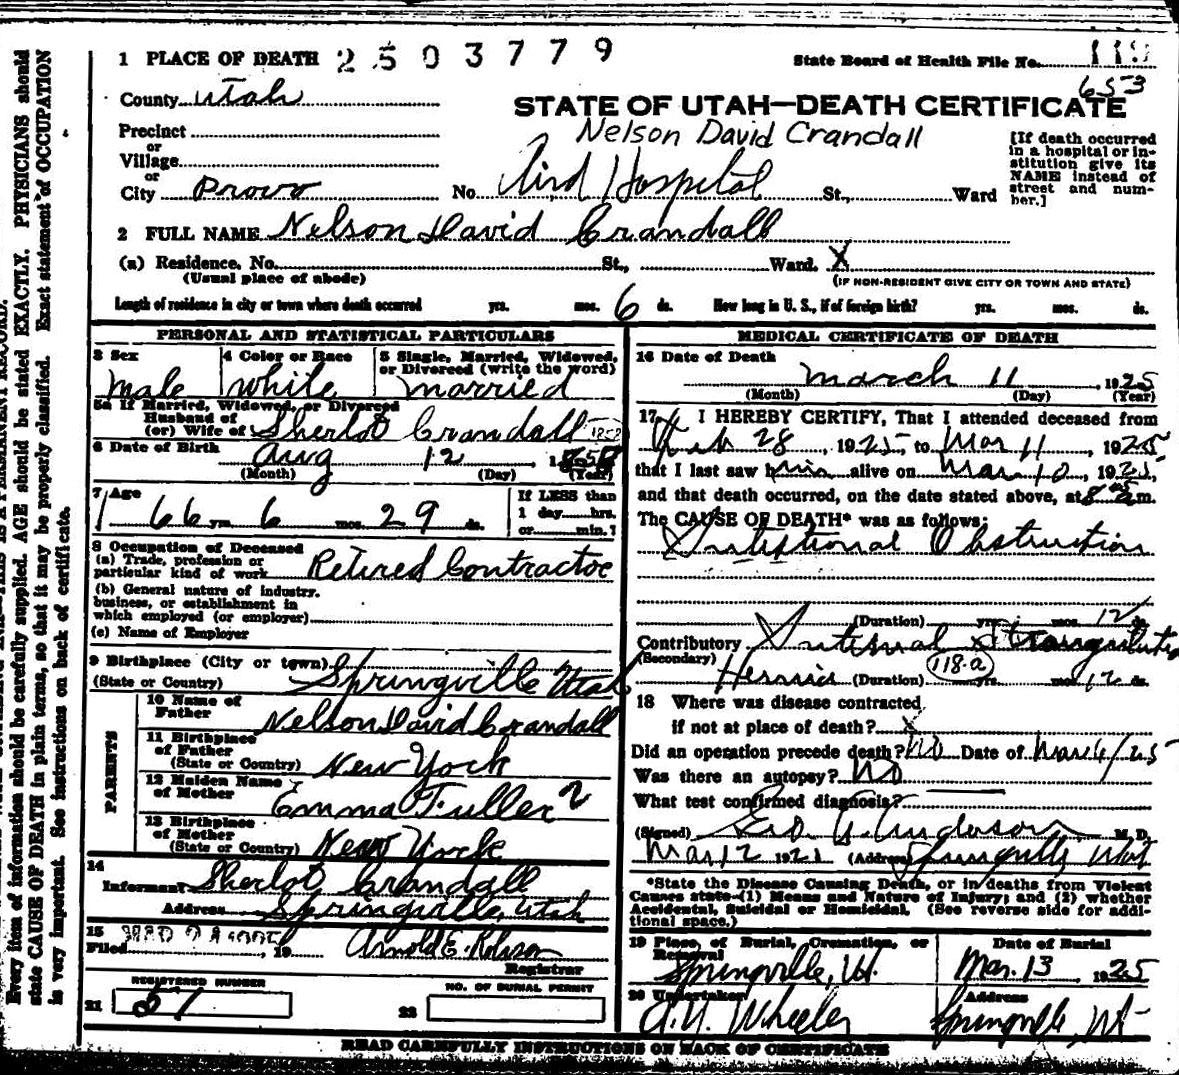 1 PLACE OF DEATH 2503779
State Board of Health File No. 119
653
County Utah
STATE OF UTAH—DEATH CERTIFICATE
Nelson David Crandall
Precinct
or
Village
or
City Provo No. Aird Hospital St., Ward
[If death occurred
in a hospital or in-
stitution give its
NAME instead of
street and num-
ber.]
2 FULL NAME Nelson David Crandall
(a) Residence. No. St., Ward. X
(Usual place of abode) (IF NON-RESIDENT GIVE CITY OR TOWN AND STATE)
Length of residence in city or town where death occurred yrs. mos. 6 ds. How long in U. S., if of foreign birth? yrs. mos. ds.
PERSONAL AND STATISTICAL PARTICULARS
3 Sex 4 Color or Race 5 Single, Married, Widowed,
or Divorced (write the word)
Male White Married
5a If Married, Widowed, or Divorced
Husband of
(or) Wife of Sherlot Crandall
6 Date of Birth Aug 12
(Month) (Day) (Year)
7 Age 66 yrs. 6 mos. 29 ds.
If LESS than
1 day hrs.
or min.?
8 Occupation of Deceased
(a) Trade, profession or
particular kind of work Retired Contractor
(b) General nature of industry,
business, or establishment in
which employed (or employer)
(c) Name of Employer
9 Birthplace (City or town) Springville Utah
(State or Country)
PARENTS
10 Name of
Father Nelson David Crandall
11 Birthplace
of Father
(State or Country) New York
12 Maiden Name
of Mother Emma Fuller 2
13 Birthplace
of Mother
(State or Country) New York
14
Informant Sherlot Crandall
Address Springville, Utah
15
Filed , 19 Arnold E. Robison
Registrar
REGISTERED NUMBER
21 51
NO. OF BURIAL PERMIT
22
MEDICAL CERTIFICATE OF DEATH
16 Date of Death
March 11, 1925
(Month) (Day) (Year)
17 I HEREBY CERTIFY, That I attended deceased from
Feb 28, 1925, to Mar 11, 1925,
that I last saw him alive on Mar 10, 1925,
and that death occurred, on the date stated above, at 8 a m.
The CAUSE OF DEATH* was as follows:
Intestional Obstruction
(Duration) yrs. mos. 12 ds.
Contributory Internal Strangulated
(Secondary) Hernia (Duration) 118-a yrs. mos. 12 ds.
18 Where was disease contracted
if not at place of death? X
Did an operation precede death? No Date of Mar 6/25
Was there an autopsy? No
What test confirmed diagnosis?
(Signed) Geo. A. Anderson M.D.
Mar 12 192 (Address) Springville, Utah
*State the Disease Causing Death, or in deaths from Violent
Causes state—(1) Means and Nature of Injury; and (2) whether
Accidental, Suicidal or Homicidal. (See reverse side for addi-
tional space.)
19 Place, of Burial, Cremation, or
Removal Date of Burial
Springville, Ut. Mar. 13, 1925
20 Undertaker Address
A. Y. Wheeler Springville, Ut
READ CAREFULLY INSTRUCTIONS ON BACK OF CERTIFICATE
Every item of information should be carefully supplied. AGE should be stated EXACTLY. PHYSICIANS should
state CAUSE OF DEATH in plain terms, so that it may be properly classified. Exact statement of OCCUPATION
is very important. See instructions on back of certificate.